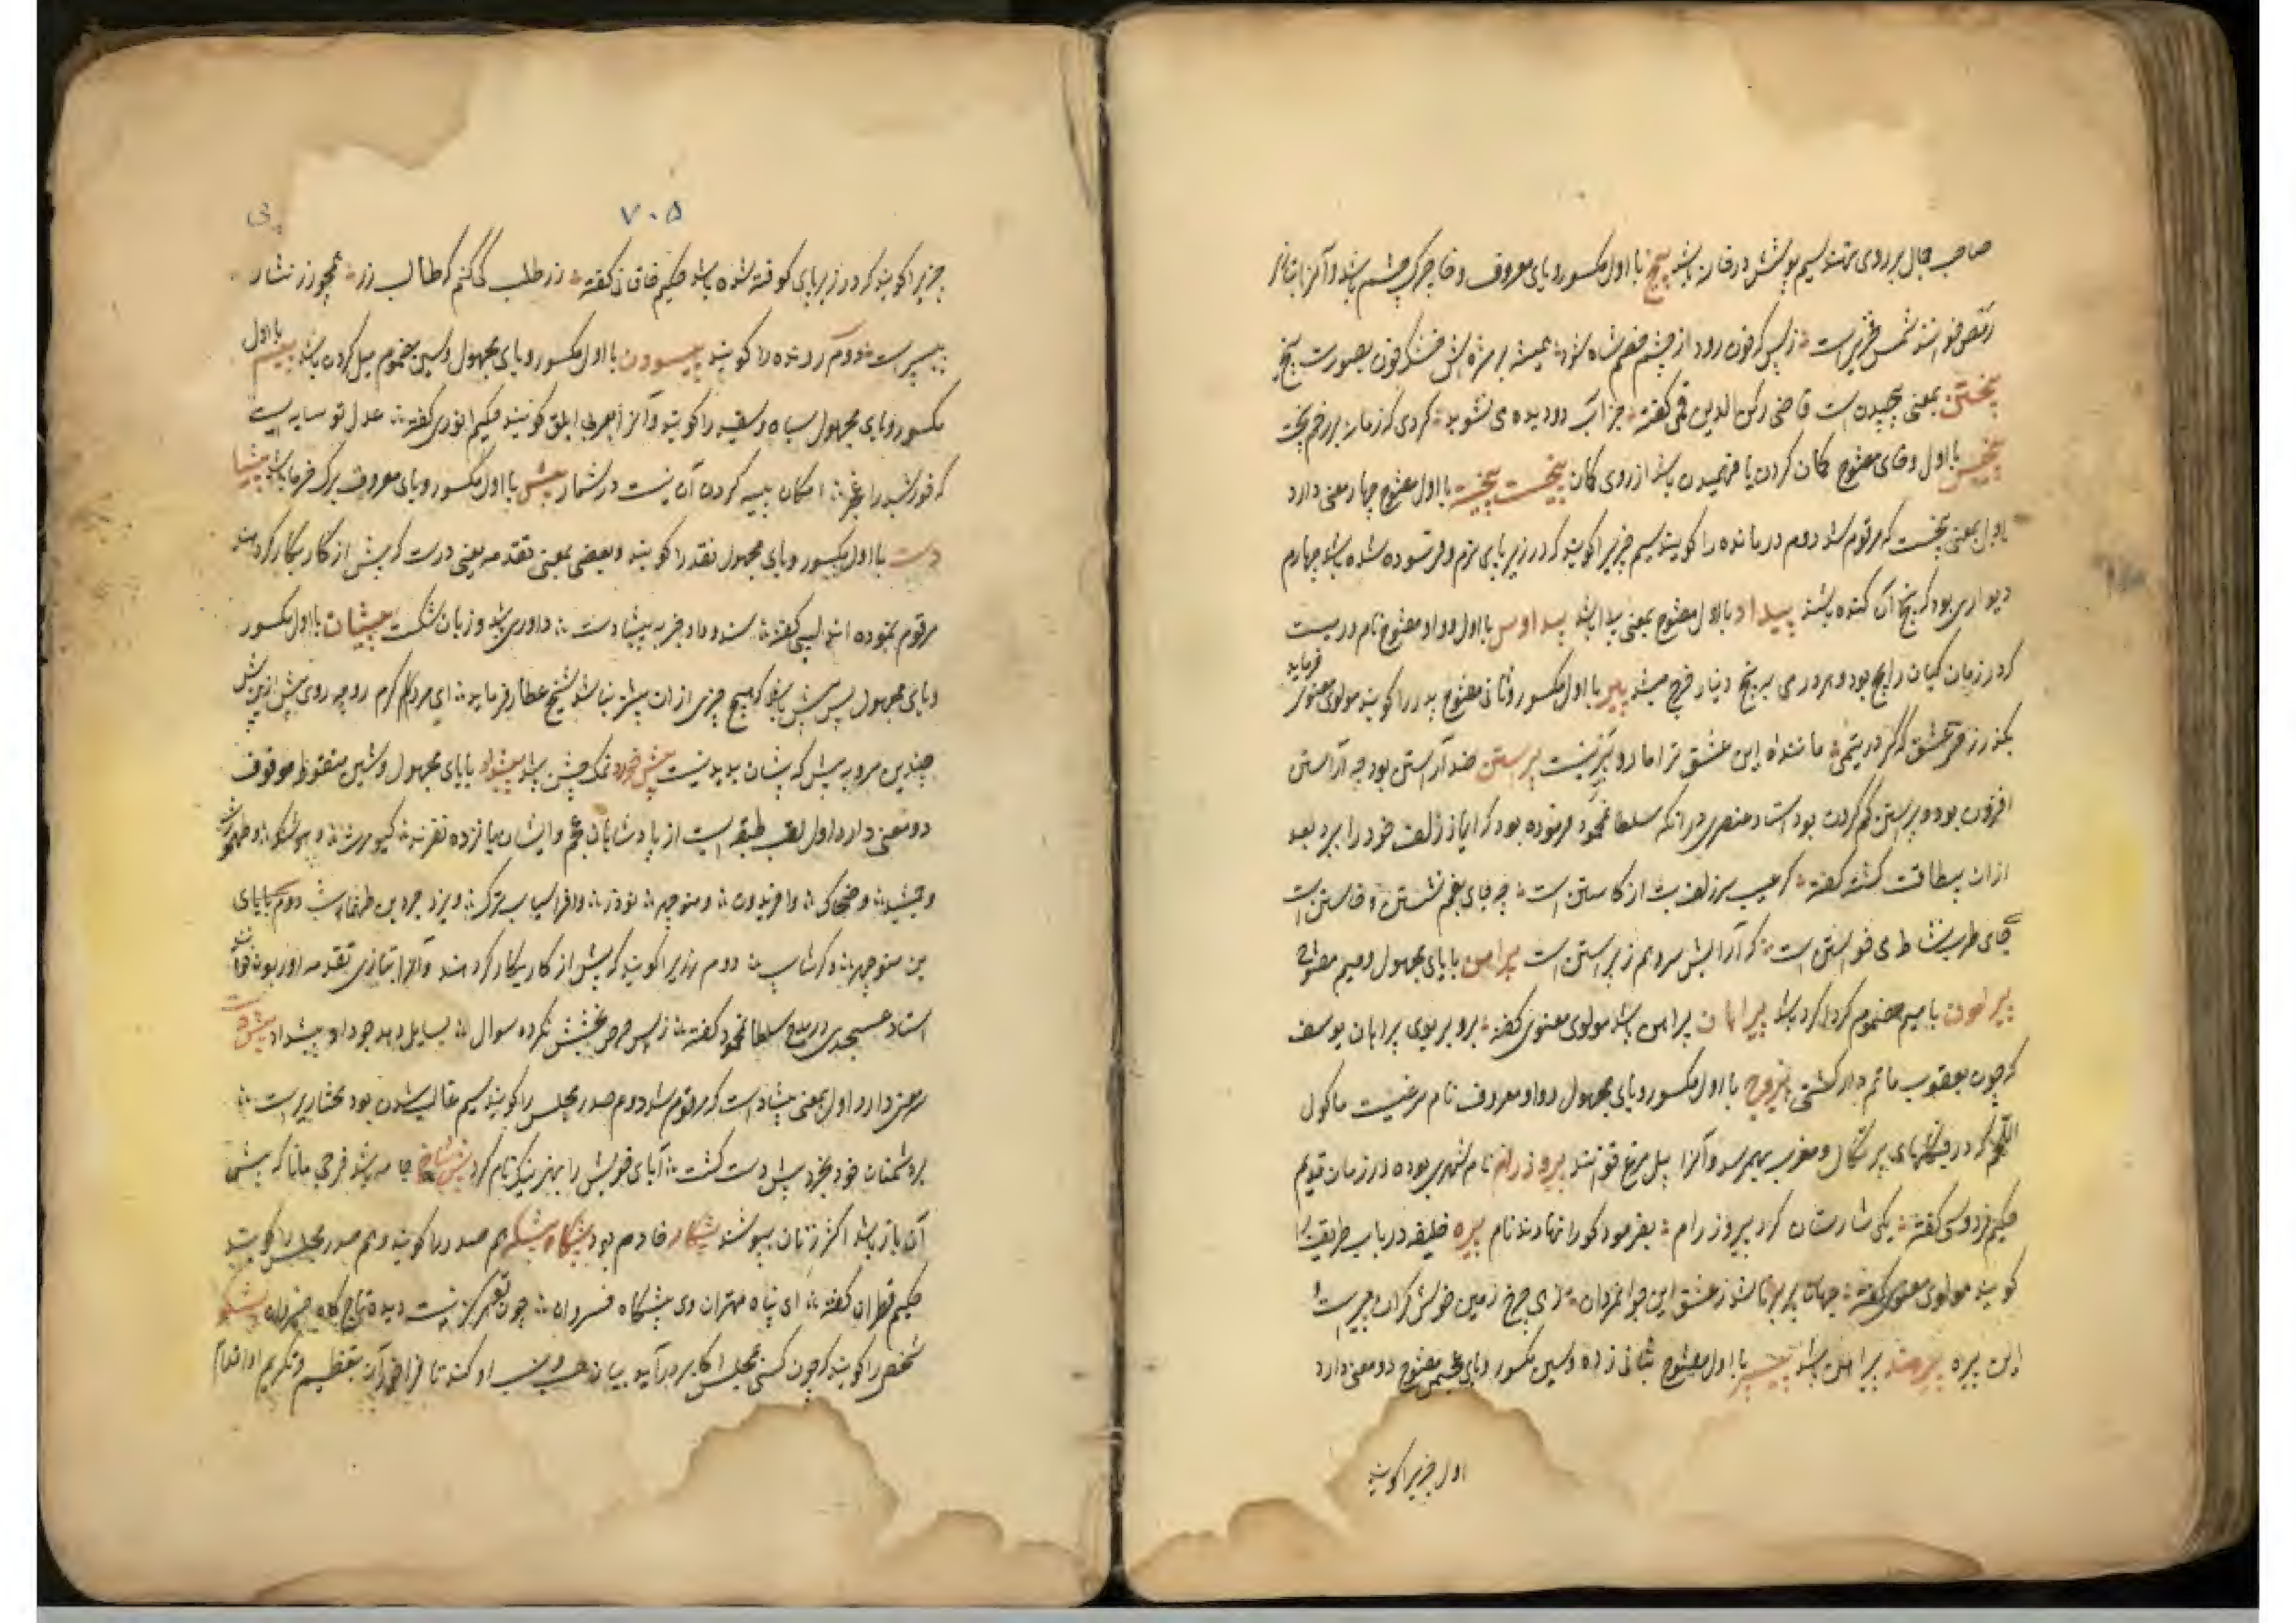 صاحب جمال بر روی تهند سیم پوشش در خانه باشد پیخ با اول مکسور و یای معروف و خا چرک چشم باشد و آنرا بتازی
رمص خوانند شمس فخری است ز بس که خون رود از چشم خصم شاه شود همیشه بر مژه‌اش خشک خون بصورت پیخ
پیختن بمعنی پیچیدن است قاضی رکن الدین قمی گفته جز آب دو دیده می نشوید گردی که زمانه بر رخم پیخت
پیخس با اول و خای مفتوح گمان کردن یا فهمیدن باشد از روی گمان پیخست پیخسته با اول مفتوح چهار معنی دارد
اول بمعنی پیخست که مرقوم شد دوم درمانده را گویند سیم چیزیرا گویند که در زیر پای نرم و فرسوده شده باشد چهارم
دیواری بود که بیخ آن کنده باشند پیداد با اول مفتوح بمعنی پیدا باشد پیداوس با اول و واو مفتوح نام درمیست
که در زمان کیان رایج بود و هر درمی به پنج دینار خرج میشد پیر با اول مکسور و ثانی مفتوح پدر را گویند مولوی معنوی فرماید
عشق گر در یتیمی مانند این عشق ترا مادر و پیر نیست پیراستن ضد آراستن بود چه آراستن
افزون بود و پیراستن کم کردن بود استاد عنصری در آنکه سلطان محمود فرموده بود که ایاز زلف خود را ببرد بعد
از آن بیطاقت گشته گفته گر عیب سر زلف بت از کاستن است چه جای بغم نشستن و خاستن است
جای طرب و نشاط و می خواستن است که آرایش سرو هم ز پیراستن است پیرامن با یای مجهول و میم مفتوح
پیرامون با میم مضموم گرداگرد باشد پیراهان پیراهن باشد مولوی معنوی گفته برو بر بوی پیراهان یوسف
که چون یعقوب ماتم دار گشتی پیروج با اول مکسور و یای مجهول و واو معروف نام مرغیست ماکول
اللحم که در فرنگهای پرتگال و مغرب بهم رسد و آنرا پیل مرغ خوانند پیروز رام نام شهری بوده در زمان قدیم
حکیم فردوسی گفته یکی شارستان کرد پیروز رام بفرمود کو را نهادند نام پیره خلیفه در باب طریقت را
گویند مولوی معنوی گفته جهان پیر برنا شد ز عشق این جوانمردان زهی چرخ و زمین خوش کران پیر است و
این پیره پیرهند پیراهن باشد پیسپر با اول مفتوح ثانی زده و سین مکسور و بای عجمی مفتوح دو معنی دارد
اول چیزیرا گویند
۷۰۵
پی
چیزیرا گویند که در زیر پای کوفته شده باشد حکیم خاقانی گفته زر طلب کی کنم که طالب زر همچو زر نثار
پیسپر است دوم رونده را گویند پیسودن با اول مکسور و یای مجهول و سین مضموم میل کردن باشد پیسه با اول
مکسور و یای مجهول سیاه و سفید را گویند و آنرا بعربی ابلق گویند حکیم انوری گفته عدل تو سایه ایست
که خورشید را ز عجز امکان پیسه کردن آن نیست در شمار پیش با اول مکسور و یای معروف برگ خرما باشد پیشا
دست با اول مکسور و یای مجهول نقد را گویند و بعضی بمعنی تقدمه یعنی دست که پیش از کار بکار کردهند
مرقوم نموده اند لبیبی گفته ستد و داد جز به پیشادست داوری باشد و زیان و شکست پیشان با اول مکسور
و یای مجهول پیش پیش باشد که هیچ چیزی از آن پیشتر نباشد شیخ عطار فرماید ای مرد گرم رو چه روی پیش ازین به پیش
چندین مرو به پیش که پیشان پدید نیست پیش خورد نمک چش باشد پیشداد با یای مجهول و شین منقوط موقوف
دو معنی دارد اول لقب طبقه ایست از پادشاهان عجم و ایشان یازده نفرند کیومرث و هوشنگ و طهمورث
و جمشید و ضحاک و افریدون و منوچهر و نوذر و افراسیاب ترک و دوم با یای
بن منوچهر و گرشاسب دوم زریرا گویند که پیش از کار بکار کردهند و آنرا بتازی تقدمه
استاد عسجدی در مدح سلطان محمود گفته ز بس حرص بخشش نکرده سوال بسایل دهد جود او پیشداد پیش دست
سه معنی دارد اول بمعنی پیشداد است که مرقوم شد دوم صدر مجلس را گویند سیم غالب شدن بود مختاری راست
بر دشمنان خود بخرد پیش دست گشت آبای خویش را بهنر نیک نام کرد پیش شاخ جامه باشد فرجی مانند که پیش
آن باز باشد اکثر زنان پوشند پیشکار خادم بود پیشگاه پیشگه هم صدر را گویند و هم صدر مجلس را گویند
حکیم قطران گفته ای پناه مهتران وی پیشگاه خسروان چون تو هرگز نیست دیده تاج گاه خسروان پیشگو
شخصی را گویند که چون کسی بمجلس اکابر درآید بیان حسب و نسب او کند تا فراخور آن بتعظیم و تکریم او اقدام